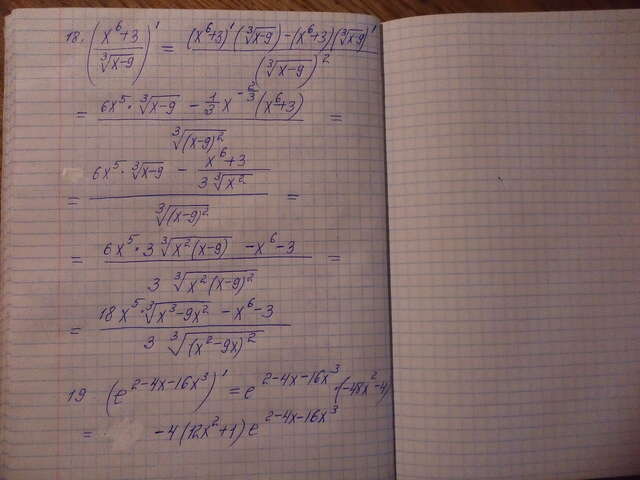 18. (x⁶+3 / ∛(x-9))' = ((x⁶+3)' (∛(x-9)) - (x⁶+3)(∛(x-9))') / (∛(x-9))²
= (6x⁵ · ∛(x-9) - 1/3 x^(-2/3) (x⁶+3)) / ∛((x-9)²) =
= (6x⁵ · ∛(x-9) - (x⁶+3)/(3∛(x²))) / ∛((x-9)²) =
= (6x⁵ · 3 ∛(x²(x-9)) - x⁶ - 3) / (3 ∛(x²(x-9)²)) =
= (18x⁵ · ∛(x³-9x²) - x⁶ - 3) / (3 ∛((x²-9x)²))
19 (e^(2-4x-16x³))' = e^(2-4x-16x³) · (-48x²-4)
= -4(12x²+1) e^(2-4x-16x³)